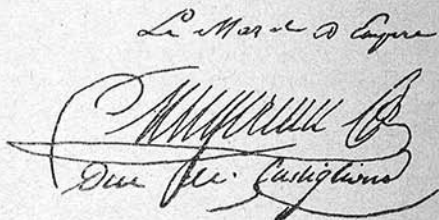 Le Mar al D Empire
Augereau
Duc de Castiglione